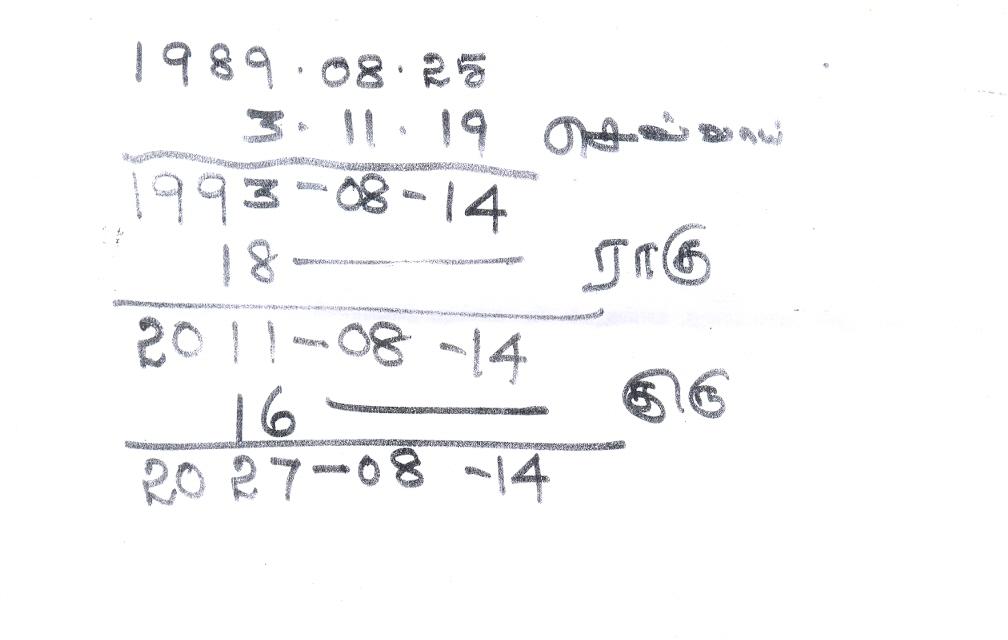 1989.08.25
3.11.19 செவ்வாய்
1993-08-14
18 ராகு
2011-08-14
16 குரு
2027-08-14